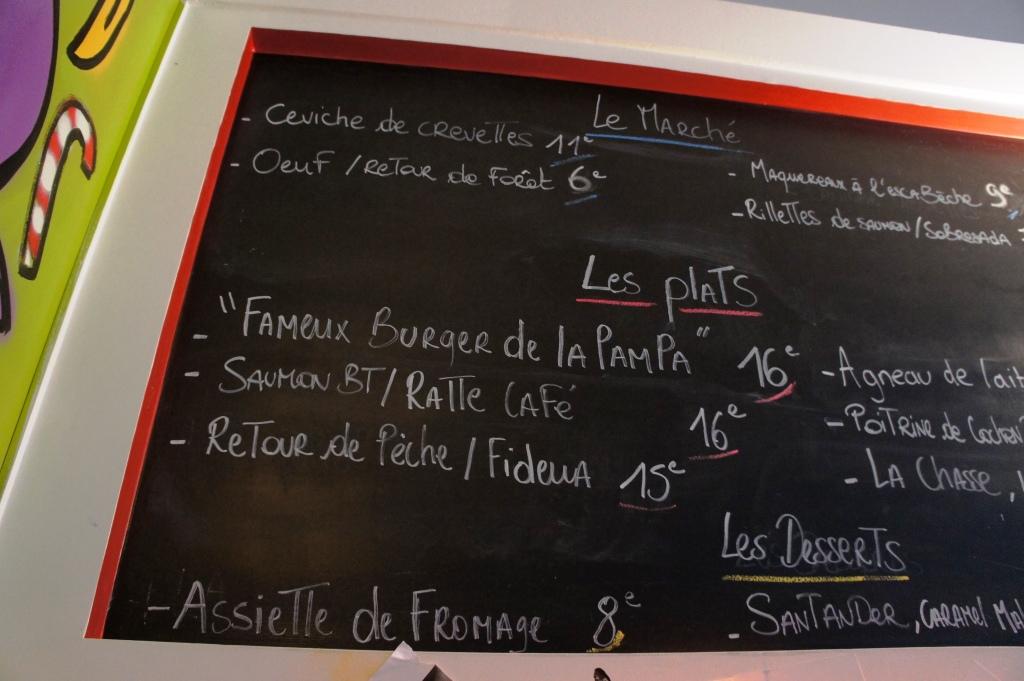 Le Marché
- Ceviche de crevettes 11€
- Oeuf / Retour de Forêt 6€
- Maquereau à l'escabèche 9€
- Rillettes de saumon / Sobresada
Les plats
- "Fameux Burger de la Pampa" 16€
- Saumon BT / Ratte Café 16€
- Retour de Pêche / Fideua 15€
- Agneau de lait
- Poitrine de
- La Chasse,
Les Desserts
- Assiette de Fromage 8€
- Santander, Caramel